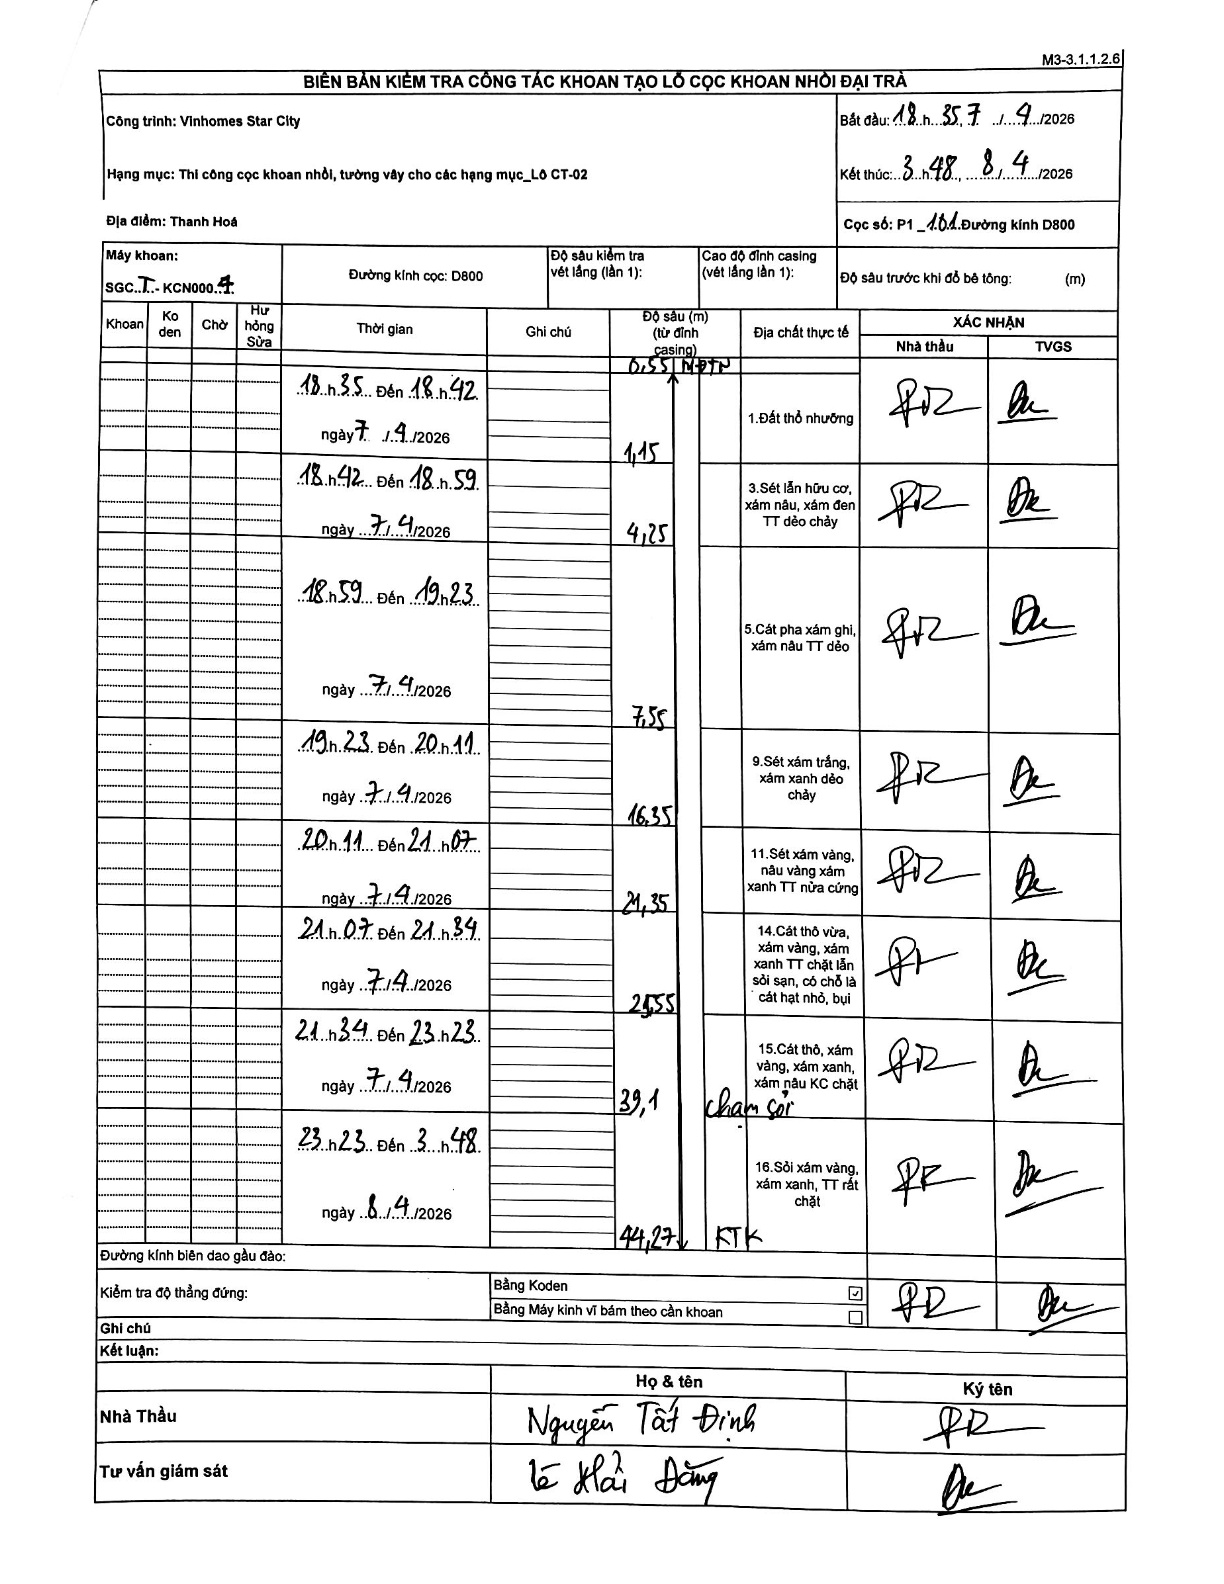 M3-3.1.1.2.6
BIÊN BẢN KIỂM TRA CÔNG TÁC KHOAN TẠO LỖ CỌC KHOAN NHỒI ĐẠI TRÀ
Công trình: Vinhomes Star City
Bắt đầu: 18..h...35, 7 ../...4../2026
Hạng mục: Thi công cọc khoan nhồi, tường vây cho các hạng mục_Lô CT-02
Kết thúc:..3..h48.., ...8../...4.../2026
Địa điểm: Thanh Hoá
Cọc số: P1 _101.Đường kính D800
Máy khoan:
SGC..T..- KCN000..4.
Đường kính cọc: D800
Độ sâu kiểm tra
vét lắng (lần 1):
Cao độ đỉnh casing
(vét lắng lần 1):
Độ sâu trước khi đổ bê tông: (m)
Khoan
Ko
den
Chờ
Hư
hỏng
Sửa
Thời gian
Ghi chú
Độ sâu (m)
(từ đỉnh
casing)
Địa chất thực tế
XÁC NHẬN
Nhà thầu
TVGS
0,55 MĐTN
..18..h.35... Đến ..18..h.42.
ngày 7. ./..4../2026
1,15
1.Đất thổ nhưỡng
..18..h.42... Đến ..18..h.59.
ngày ...7../...4../2026
4,25
3.Sét lẫn hữu cơ,
xám nâu, xám đen
TT dẻo chảy
...18.h59... Đến ...19.h23..
ngày ...7../...4../2026
7,55
5.Cát pha xám ghi,
xám nâu TT dẻo
..19.h.23. Đến ..20.h.11..
ngày ..7../..4../2026
16,35
9.Sét xám trắng,
xám xanh dẻo
chảy
..20.h.11... Đến 21...h07..
ngày ..7../..4../2026
21,35
11.Sét xám vàng,
nâu vàng xám
xanh TT nửa cứng
21.h.07. Đến 21..h.34.
ngày ..7../..4../2026
14.Cát thô vừa,
xám vàng, xám
xanh TT chặt lẫn
sỏi sạn, có chỗ là
cát hạt nhỏ, bụi
21..h34... Đến 23.h23..
ngày ..7../..4../2026
39,1
15.Cát thô, xám
vàng, xám xanh,
xám nâu KC chặt
chạm sỏi
23..h23.. Đến ..3...h.48.
ngày ..8../..4../2026
44,27
16.Sỏi xám vàng,
xám xanh, TT rất
chặt
KTK
Đường kính biên dao gầu đào:
Kiểm tra độ thẳng đứng:
Bằng Koden
Bằng Máy kinh vĩ bám theo cần khoan
Ghi chú
Kết luận:
Họ & tên
Ký tên
Nhà Thầu
Nguyễn Tất Định
Tư vấn giám sát
Lê Hải Đăng